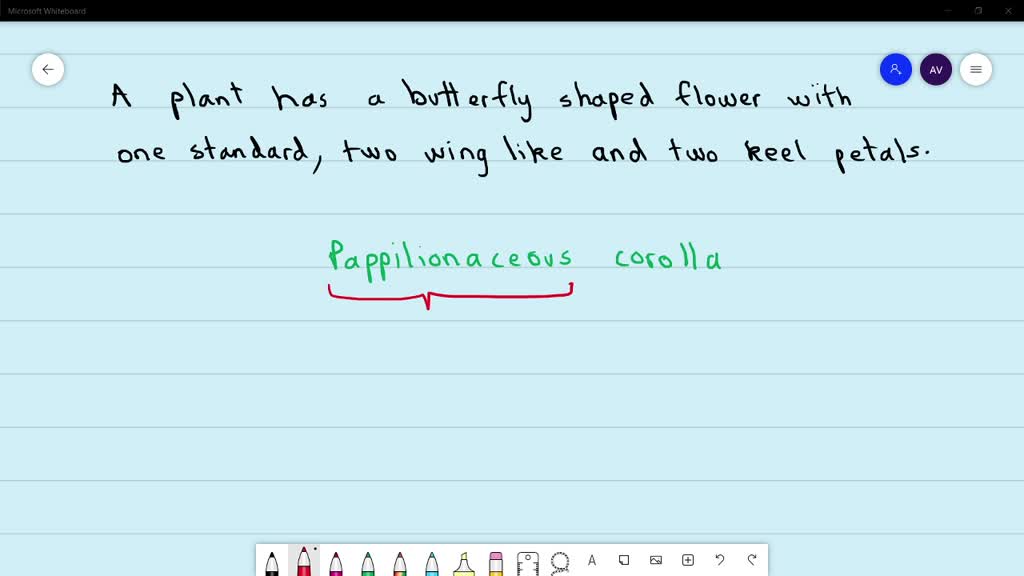 Microsoft Whiteboard
AV
A plant has a butterfly shaped flower with
one standard, two wing like and two keel petals.
Pappilionaceous corolla
A